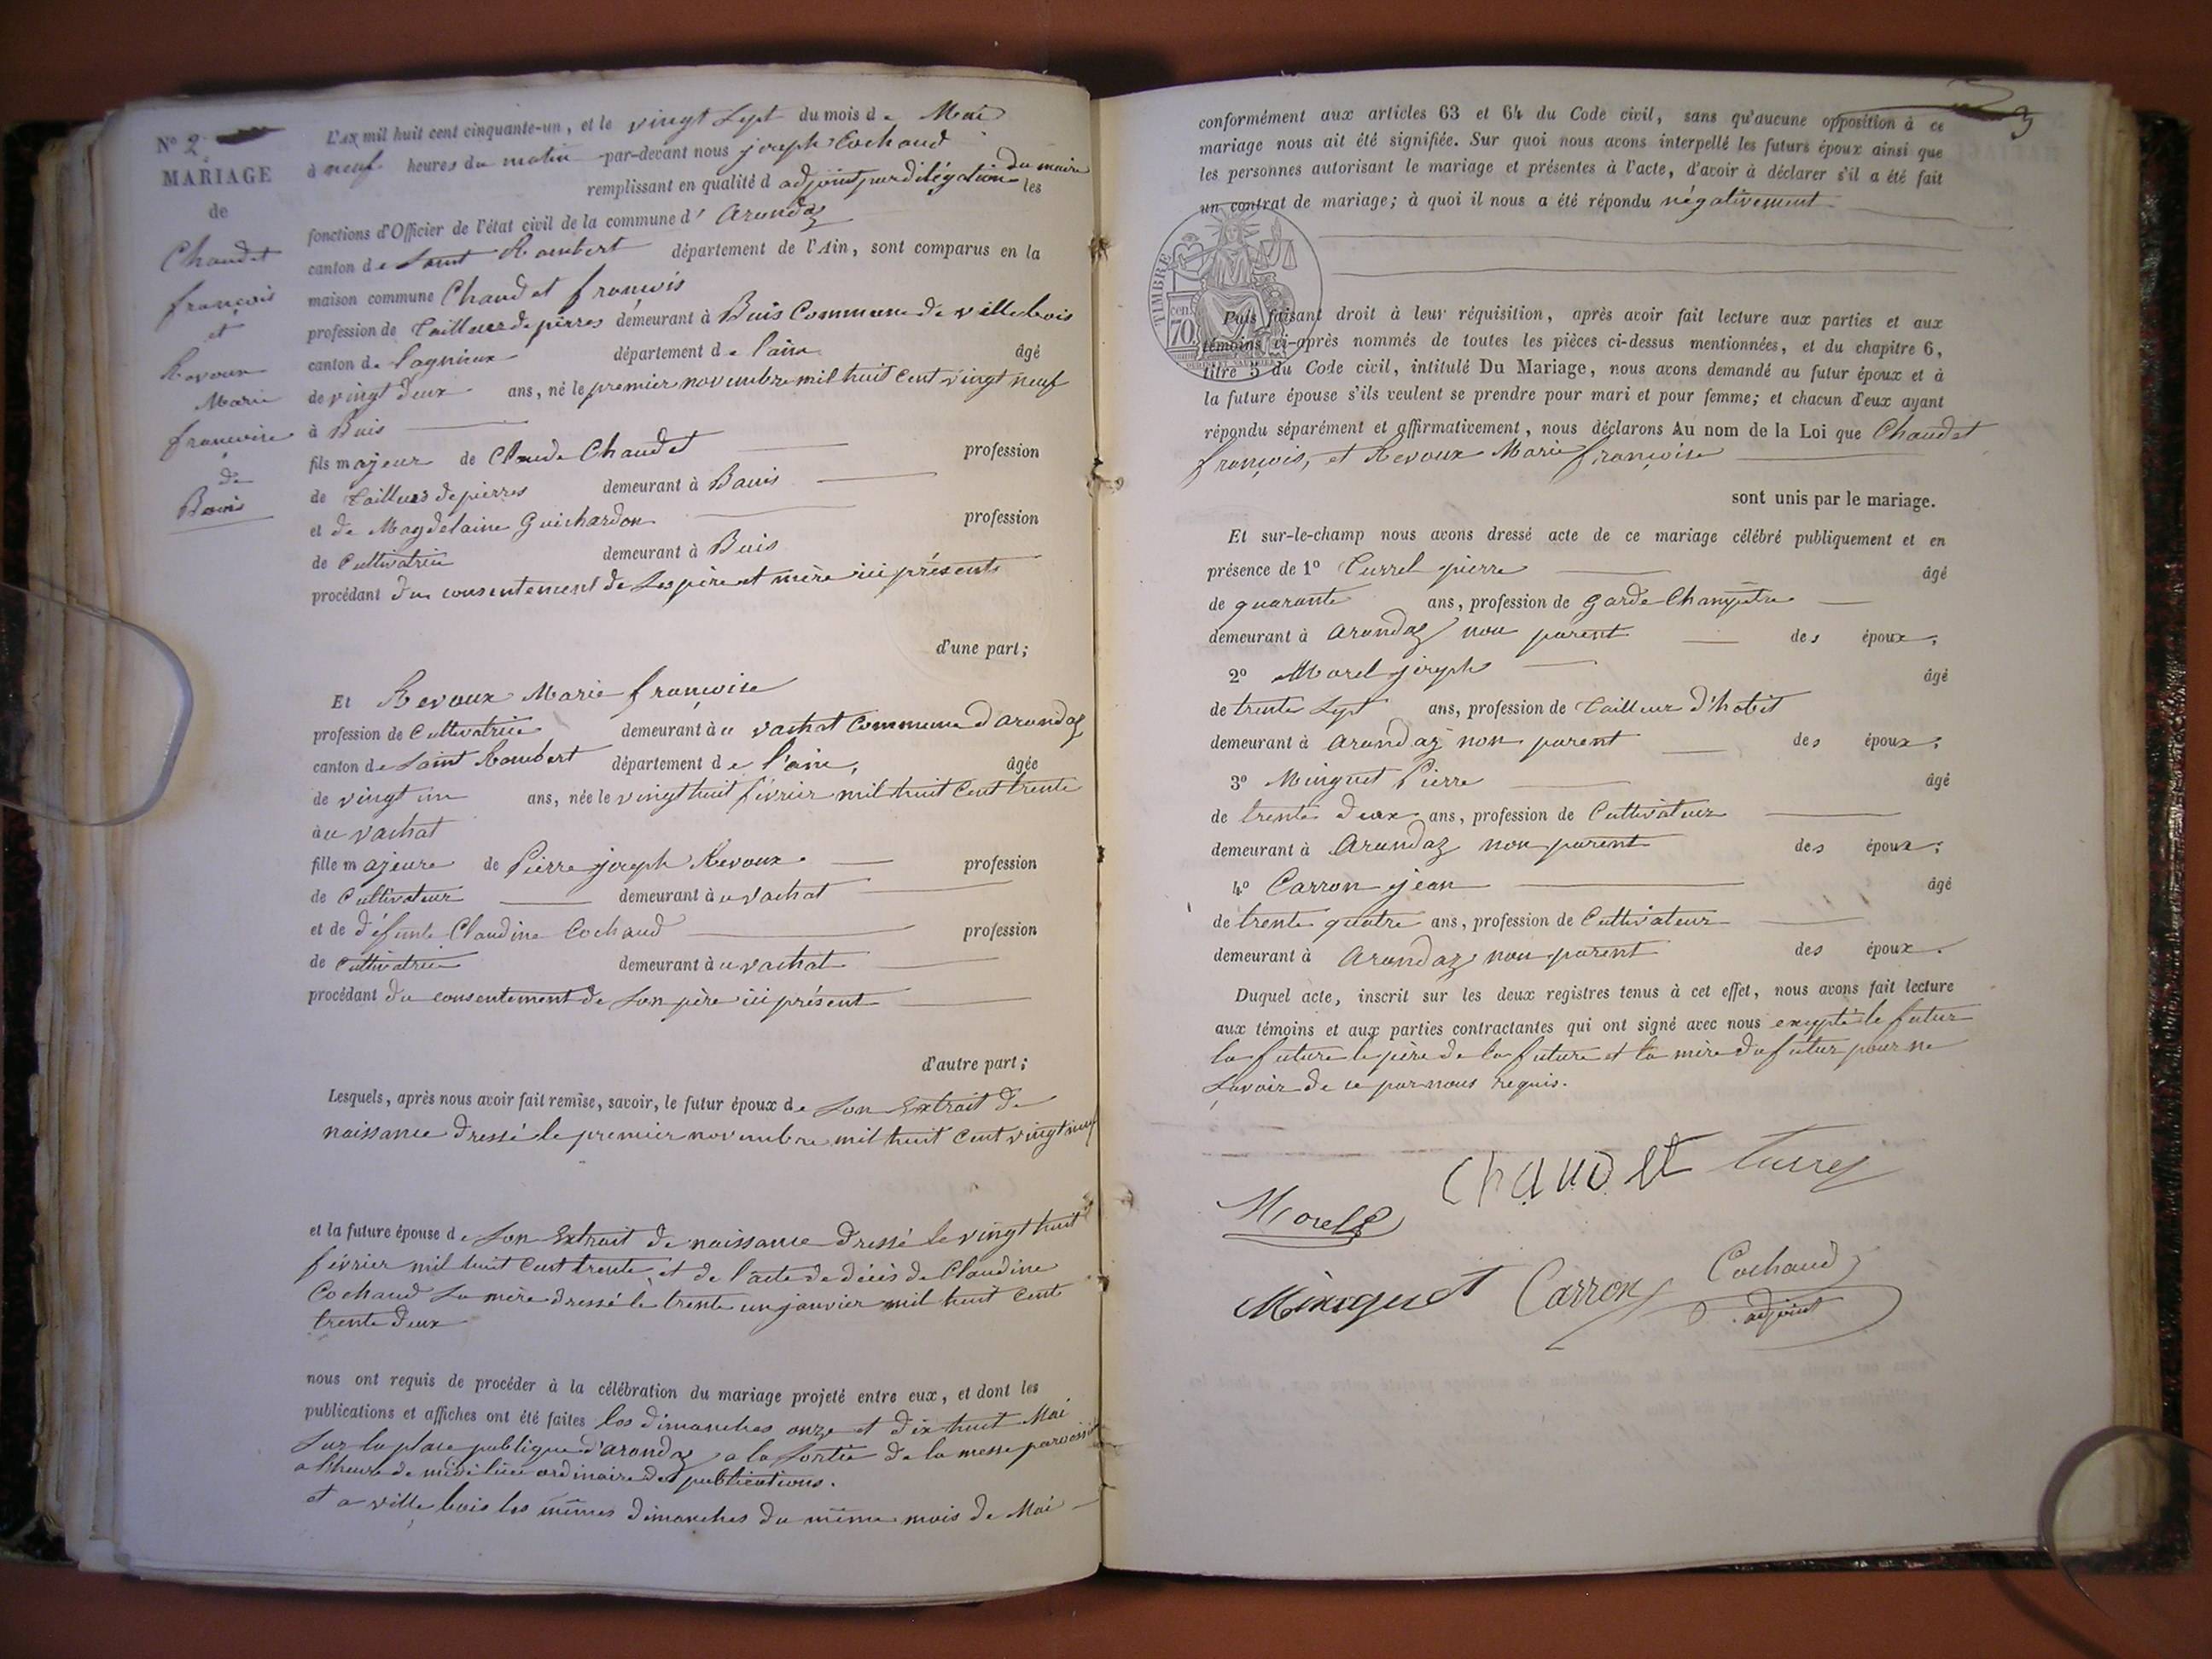 N° 2
MARIAGE
de
Chaudet
françois
et
Revoux
Marie
françoise
de
Bouis
L'AN mil huit cent cinquante-un, et le vingt Sept du mois de Mai
à neuf heures du matin par-devant nous joseph Cochaud
remplissant en qualité d adjoint par délégation du maire les
fonctions d'Officier de l'état civil de la commune d' arandaz
canton de Saint Rambert département de l'Ain, sont comparus en la
maison commune Chaudet françois
profession de Tailleur de pierres demeurant à Buis Commune de villebois
canton de Lagnieux département de l'ain âgé
de vingt deux ans, né le premier novembre mil huit cent vingt neuf
à Buis
fils majeur de Claude Chaudet profession
de Tailleur de pierres demeurant à Bouis
et de Magdelaine Guichardon profession
de Cultivatrice demeurant à Buis
procédant du consentement de Ses père et mère ici présents
d'une part;
Et Revoux Marie françoise
profession de Cultivatrice demeurant à u vachat Commune d'arandaz
canton de Saint Rambert département de l'ain, âgée
de vingt un ans, née le vingt huit février mil huit Cent trente
à u vachat
fille majeure de Pierre joseph Revoux profession
de Cultivateur demeurant à u vachat
et de défunte Claudine Cochaud profession
de Cultivatrice demeurant à u vachat
procédant du consentement de Son père ici présent
d'autre part;
Lesquels, après nous avoir fait remise, savoir, le futur époux de Son Extrait de
naissance dressé le premier novembre mil huit Cent vingt neuf
et la future épouse de Son Extrait de naissance dressé le vingt huit
février mil huit Cent trente, et de l'acte de décès de Claudine
Cochaud Sa mère dressé le trente un janvier mil huit Cent
trente deux
nous ont requis de procéder à la célébration du mariage projeté entre eux, et dont les
publications et affiches ont été faites les dimanches onze et dix huit Mai
Sur la place publique d'arandaz a la Sortie de la messe paroissiale
a l'heure de midi lieu ordinaire des publications.
et a ville bois les mêmes dimanches du même mois de Mai
3
conformément aux articles 63 et 64 du Code civil, sans qu'aucune opposition à ce
mariage nous ait été signifiée. Sur quoi nous avons interpellé les futurs époux ainsi que
les personnes autorisant le mariage et présentes à l'acte, d'avoir à déclarer s'il a été fait
un contrat de mariage; à quoi il nous a été répondu négativement
TIMBRE
70 cen.
Puis faisant droit à leur réquisition, après avoir fait lecture aux parties et aux
témoins ci-après nommés de toutes les pièces ci-dessus mentionnées, et du chapitre 6,
titre 5 du Code civil, intitulé Du Mariage, nous avons demandé au futur époux et à
la future épouse s'ils veulent se prendre pour mari et pour femme; et chacun d'eux ayant
répondu séparément et affirmativement, nous déclarons Au nom de la Loi que Chaudet
françois, et Revoux Marie françoise
sont unis par le mariage.
Et sur-le-champ nous avons dressé acte de ce mariage célébré publiquement et en
présence de 1° Turrel pierre âgé
de quarante ans, profession de Garde Champetre
demeurant à arandaz non parent des époux,
2° Morel joseph âgé
de trente Sept ans, profession de Tailleur d'habit
demeurant à arandaz non parent des époux;
3° Minguet Pierre âgé
de trente deux ans, profession de Cultivateur
demeurant à Arandaz non parent des époux;
4° Carron jean âgé
de trente quatre ans, profession de Cultivateur
demeurant à Arandaz non parent des époux.
Duquel acte, inscrit sur les deux registres tenus à cet effet, nous avons fait lecture
aux témoins et aux parties contractantes qui ont signé avec nous excepté le futur
la future le père de la future et la mère du futur pour ne
Savoir de ce par nous requis.
Chaudet Turrel
Morel
Minguet Carron Cochaud
adjoint